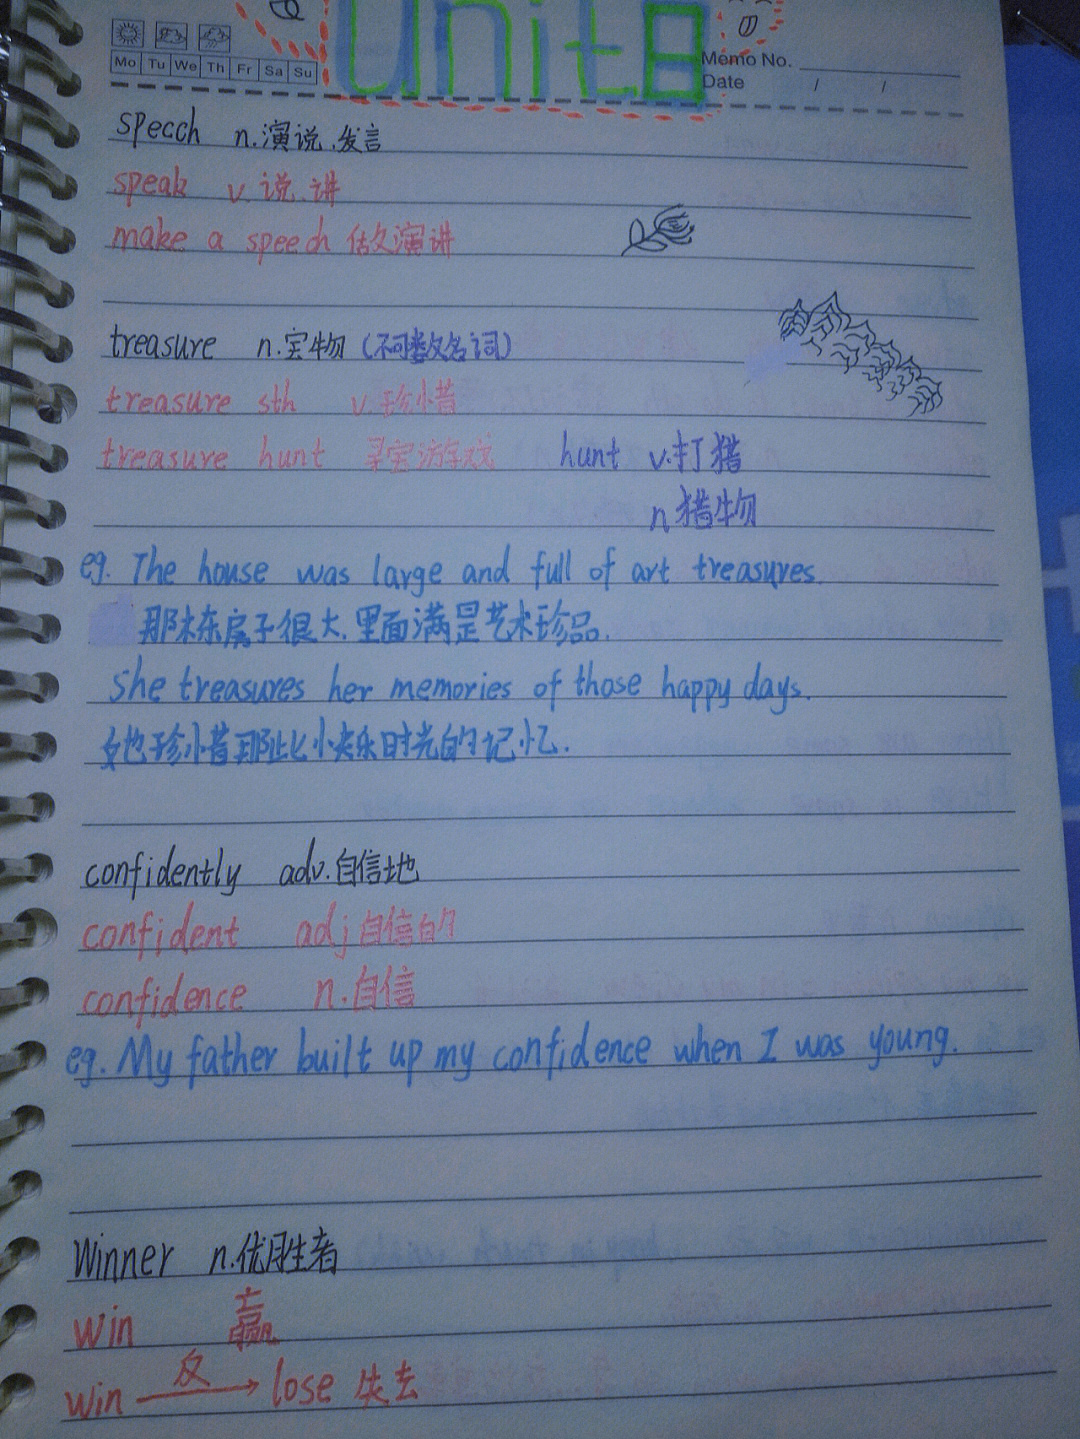 Unit 8
Mo Tu We Th Fr Sa Su
Memo No.
Date / /
specch n.演说、发言
speak v.说、讲
make a speech 做演讲
treasure n.宝物(不可数名词)
treasure sth v.珍惜
treasure hunt 寻宝游戏 hunt v.打猎
n猎物
eg. The house was large and full of art treasures.
那栋房子很大,里面满是艺术珍品.
She treasures her memories of those happy days.
她珍惜那些小快乐时光的记忆.
confidently adv.自信地
confident adj自信的
confidence n.自信
eg. My father built up my confidence when I was young.
Winner n.优胜者
win 赢
win 反→ lose 失去